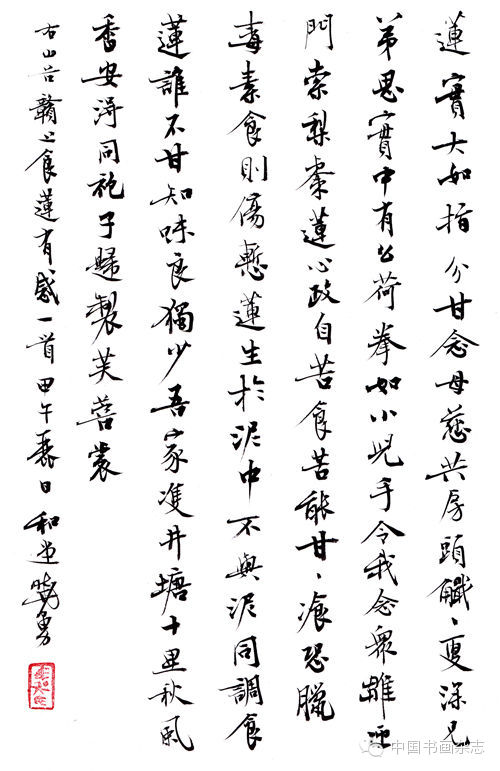 蓮實大如指分甘念母慈共房頭更深兄
弟思實中有么荷拳如小兒手令我念衆雛迎
門索梨棗蓮心政自苦食苦能甘、飡恐臘
毒素食則傷慙蓮生於泥中不與泥同調食
蓮誰不甘知味良獨少吾家雙井塘十里秋風
香安得同袍子歸製芙蓉裳
右山谷贛上食蓮有感一首甲午春日和堂
中国书画杂志